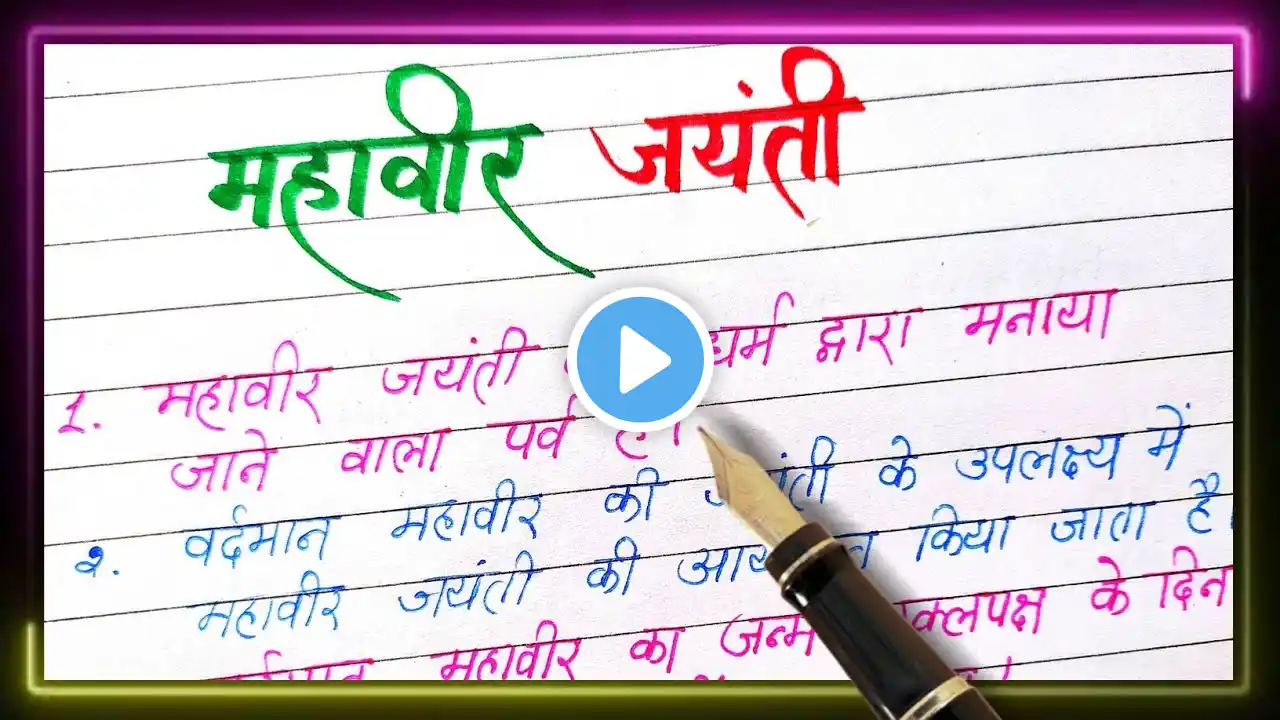 महावीर जयंती
1. महावीर जयंती धर्म द्वारा मनाया
जाने वाला पर्व है।
२. वर्दमान महावीर की के उपलक्ष्य में
महावीर जयंती की किया जाता है।
महावीर का जन्म के दिन